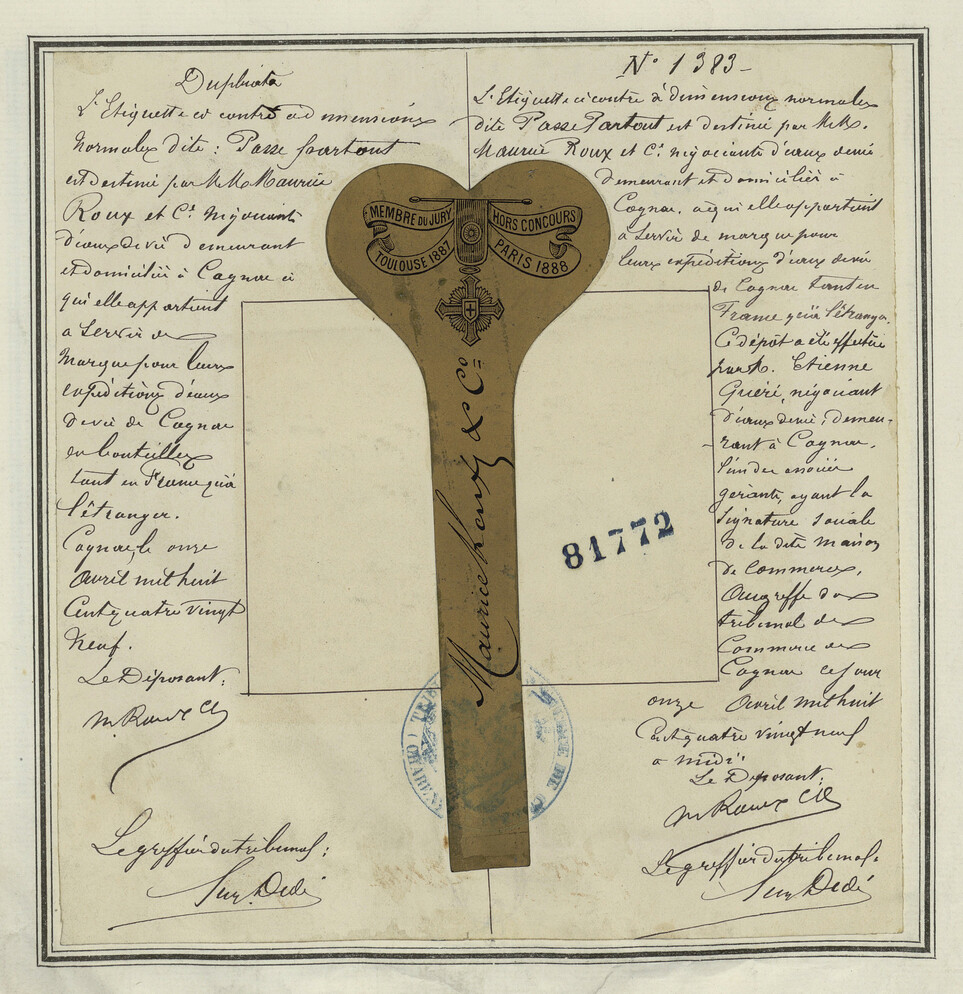 Duplicata
L'Etiquette ci contre à dimensions
Normales dite : Passe partout
est destiné par M.M. Maurice
Roux et Cie. négociants
d'eaux de vie demeurant
et domiciliés à Cognac à
qui elle appartient
a servir de
Marque pour leurs
expéditions d'eaux
de vie de Cognac
en bouteilles
tant en France qu'à
l'étranger.
Cognac, le onze
Avril mil huit
Cent quatre vingt
Neuf.
Le Déposant:
M. Roux Cie
Le greffier du tribunal:
N° 1383-
L'Etiquette ci contre à dimensions normales
dite Passe Partout est destiné par M.M.
Maurice Roux et Cie. négociants d'eaux de vie
demeurant et domiciliés à
Cognac. à qui elle appartient
à servir de marque pour
leurs expéditions d'eaux de vie
de Cognac tant en
France qu'à l'étranger.
Ce dépôt a été effectué
par M. Etienne
négociant
d'eaux de vie, demeu-
-rant à Cognac.
l'un des associés
gérants, ayant la
Signature Sociale
de la dite maison
de Commerce,
Au greffe du
tribunal de
Commerce de
Cognac ce jour
onze Avril mil huit
Cent quatre vingt neuf
a midi.
Le Déposant:
M. Roux Cie
Le greffier du tribunal.
MEMBRE DU JURY
HORS CONCOURS
TOULOUSE 1887
PARIS 1888
Maurice Roux & Co=
81772